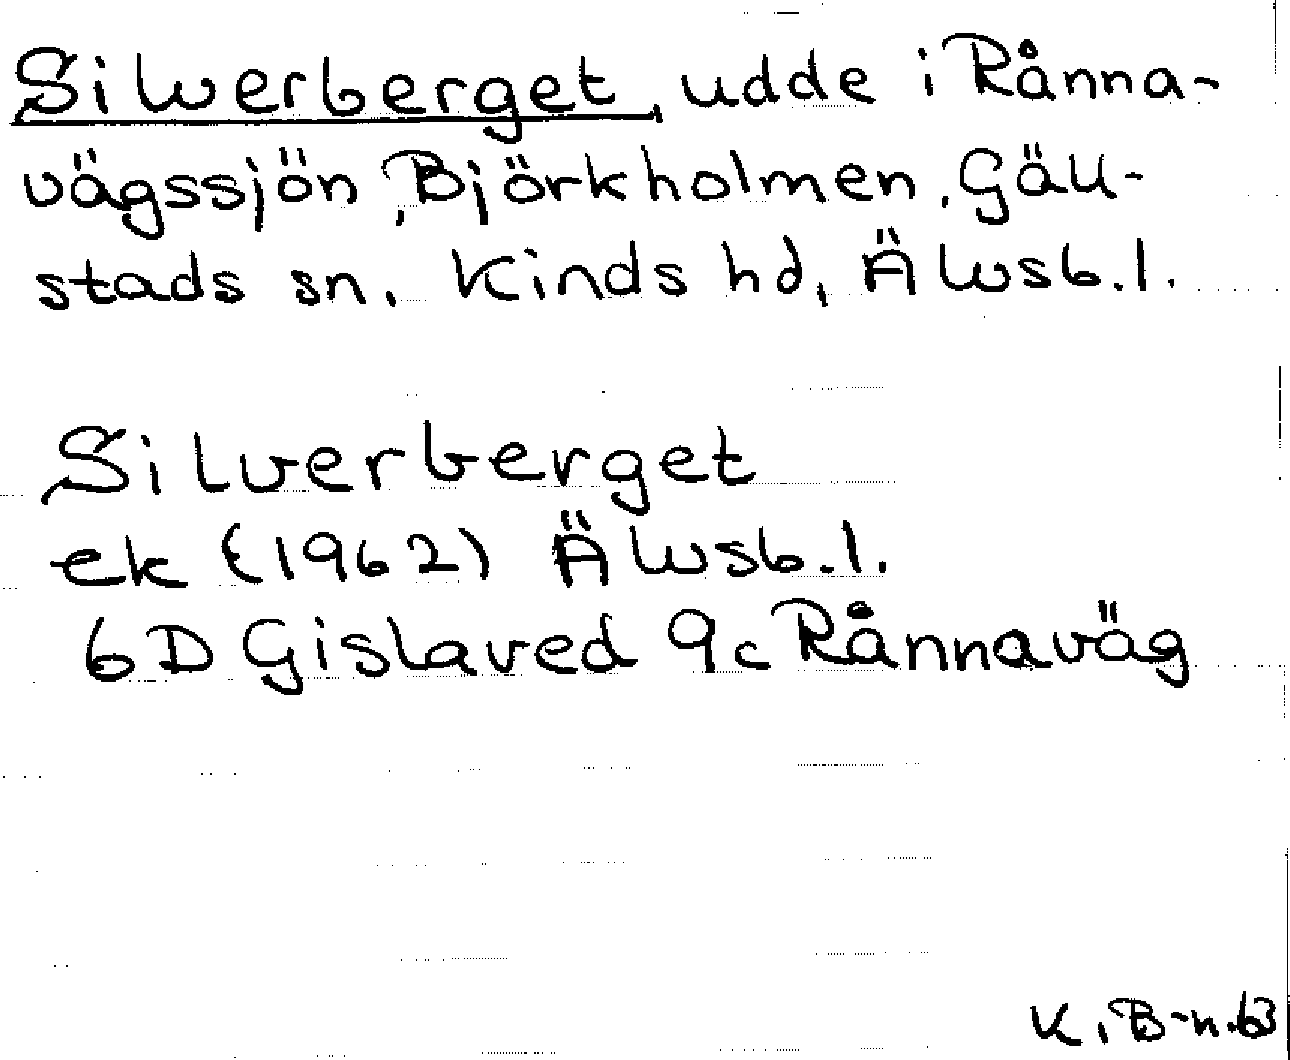 Silverberget, udde i Rånna-
vägssjön, Björkholmen, Gäll-
stads sn. Kinds hd, Älvsb.l.
Silverberget
ek (1962) Älvsb.l.
6D Gislaved 9c Rånnaväg
K. B-n. 63